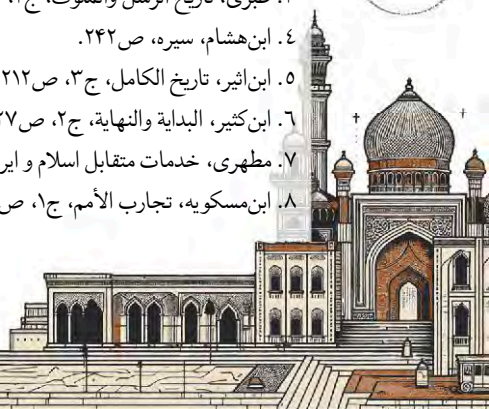 طبری، تاریخ الرسل والملوک، ج۲،
۴. ابن‌هشام، سیره، ص۲۴۲.
۵. ابن‌اثیر، تاریخ الکامل، ج۳، ص۲۱۲
۶. ابن‌کثیر، البدایة والنهایة، ج۲، ص۲۷
۷. مطهری، خدمات متقابل اسلام و ایر
۸. ابن‌مسکویه، تجارب الأمم، ج۱، ص